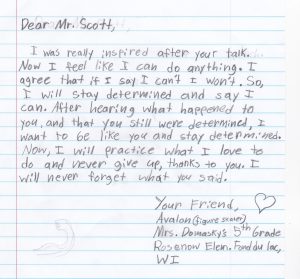 Dear Mr. Scott,
I was really inspired after your talk.
Now I feel like I can do anything. I
agree that if I say I can't I won't. So,
I will stay determined and say I
can. After hearing what happened to
you, and that you still were determined, I
want to be like you and stay determined.
Now, I will practice what I love to
do and never give up, thanks to you. I
will never forget what you said.
Your Friend,
Avalon (figure skater)
Mrs. Domasky's 5th Grade
Rosenow Elem. Fond du lac,
WI